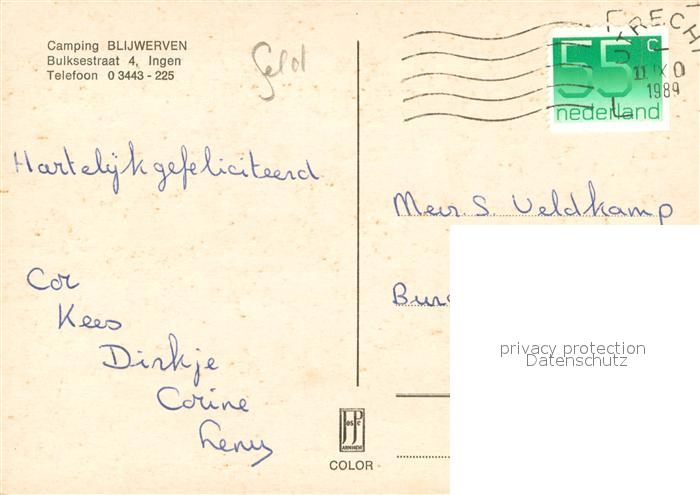 Camping BLIJWERVEN
Bulksestraat 4, Ingen
Telefoon 0 3443 - 225
Geld
UTRECHT
11 IX
1989
55 c
nederland
Hartelijk gefeliciteerd
Cor
Kees
Dirkje
Corine
Leny
JosPé
ARNHEM
COLOR
Mevr S. Veldkamp
Bur
privacy protection
Datenschutz